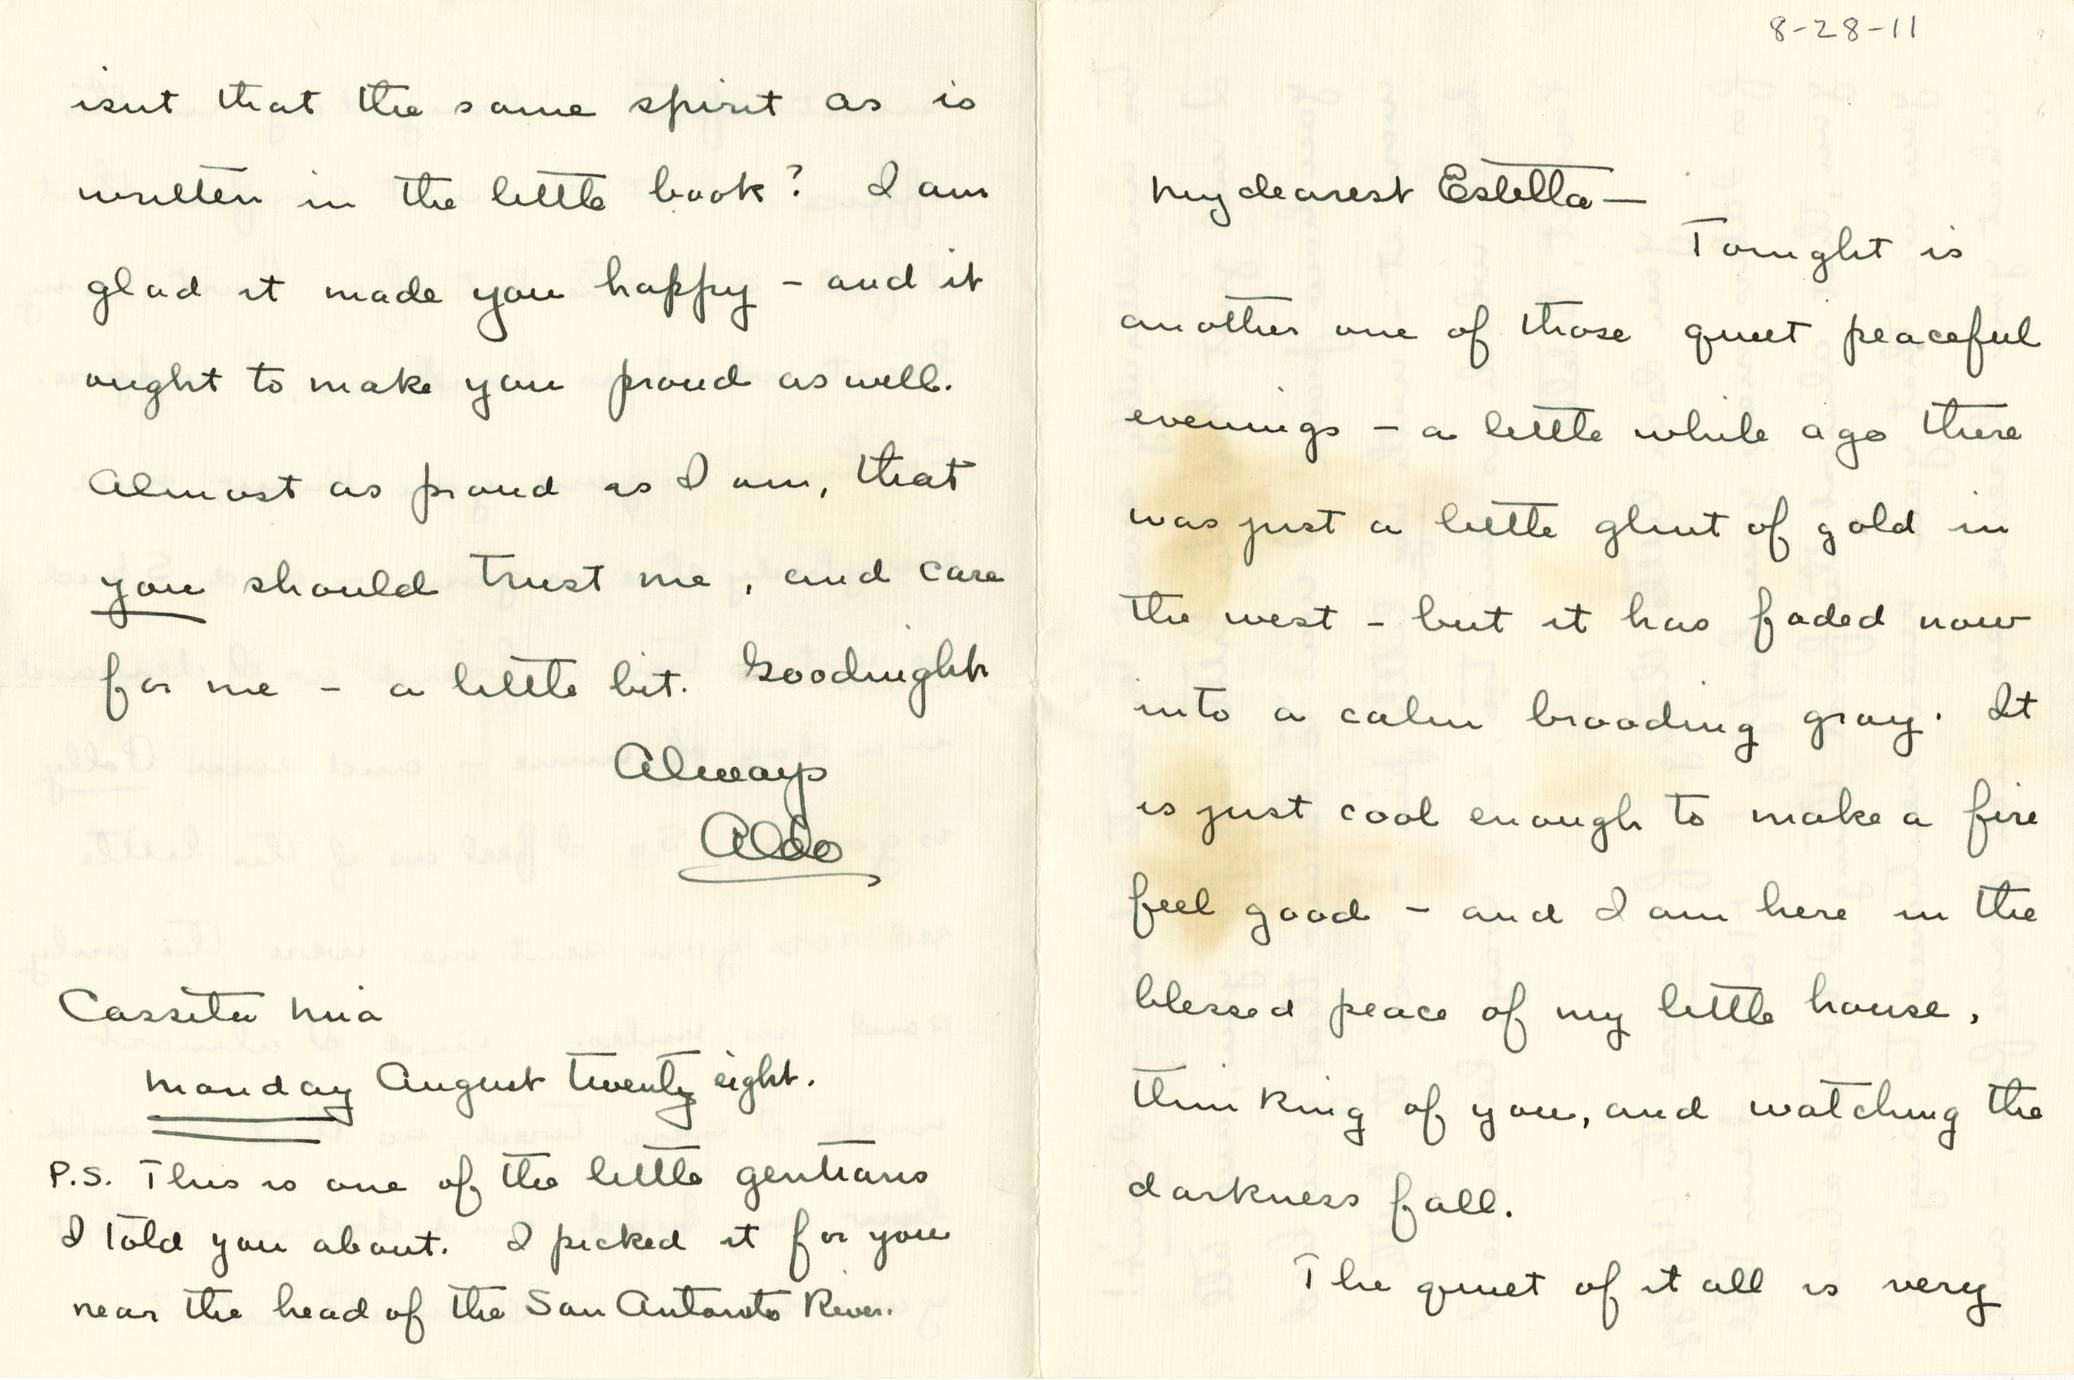 8-28-11
My dearest Estella—
Tonight is
another one of those quiet peaceful
evenings – a little while ago there
was just a little glint of gold in
the west – but it has faded now
into a calm brooding gray. It
is just cool enough to make a fire
feel good – and I am here in the
blessed peace of my little house,
thinking of you, and watching the
darkness fall.
The quiet of it all is very
isnt that the same spirit as is
written in the little book? I am
glad it made you happy – and it
ought to make you proud as well.
Almost as proud as I am, that
you should trust me, and care
for me – a little bit. Goodnight
Always
Aldo
Cassita Mia
Monday August twenty eight.
P.S. This is one of the little gentians
I told you about. I picked it for you
near the head of the San Antonito River.